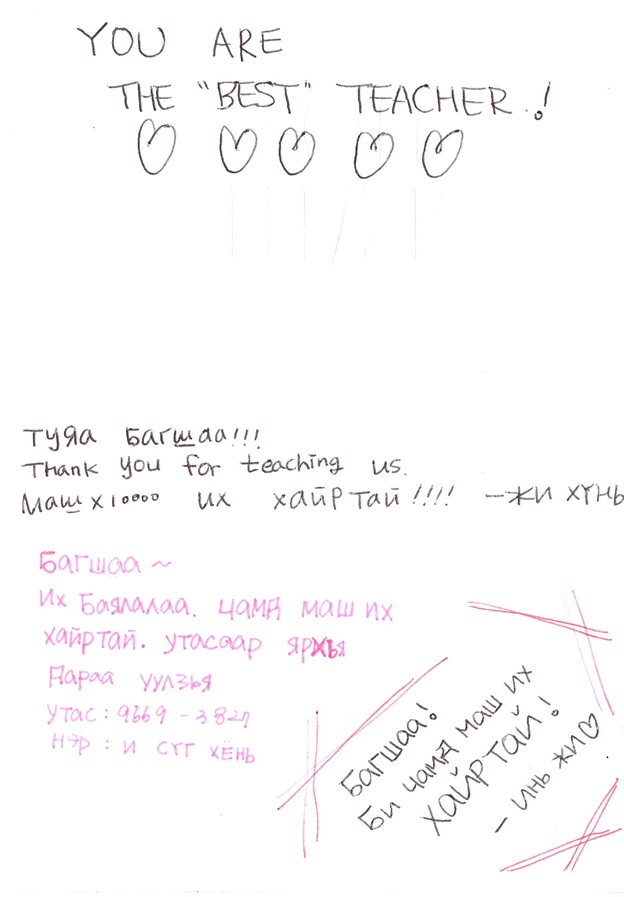 YOU ARE
THE "BEST" TEACHER.!
♡ ♡ ♡ ♡ ♡
Туяа Багшаа!!!
Thank you for teaching us.
Маш x 10000 их хайртай!!!! -Жи Хүнь
Багшаа ~
Их Баялалаа. чамд маш их
хайртай. утасаар ярхья
Дараа уулзья
Утас: 9669-3827
Нэр: И Сүг Хёнь
Багшаа!
Би чамд маш их
хайртай!
- Инь Жи♡